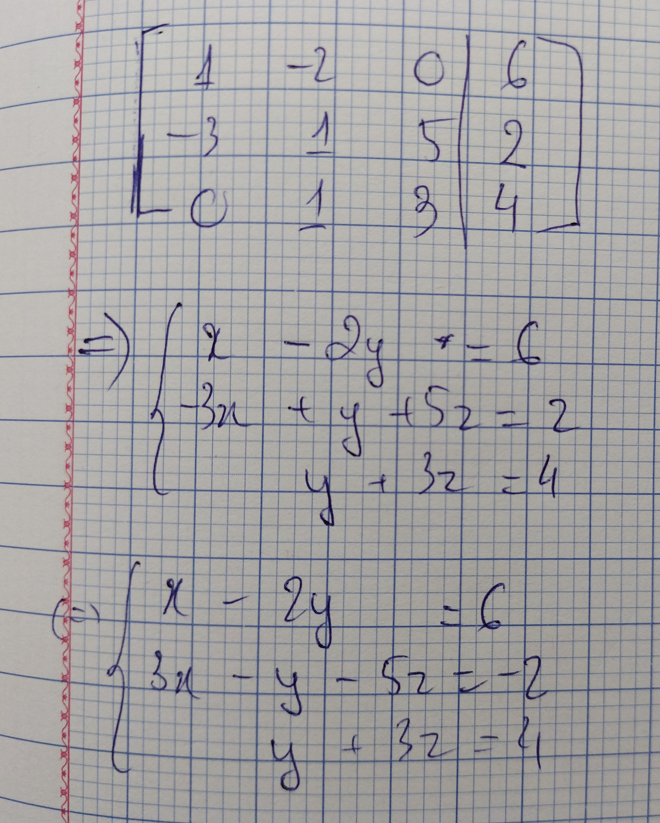 [ 1 -2 0 | 6 ]
[ -3 1 5 | 2 ]
[ 0 1 3 | 4 ]
=> { x - 2y = 6
-3x + y + 5z = 2
y + 3z = 4
(=) { x - 2y = 6
3x - y - 5z = -2
y + 3z = 4